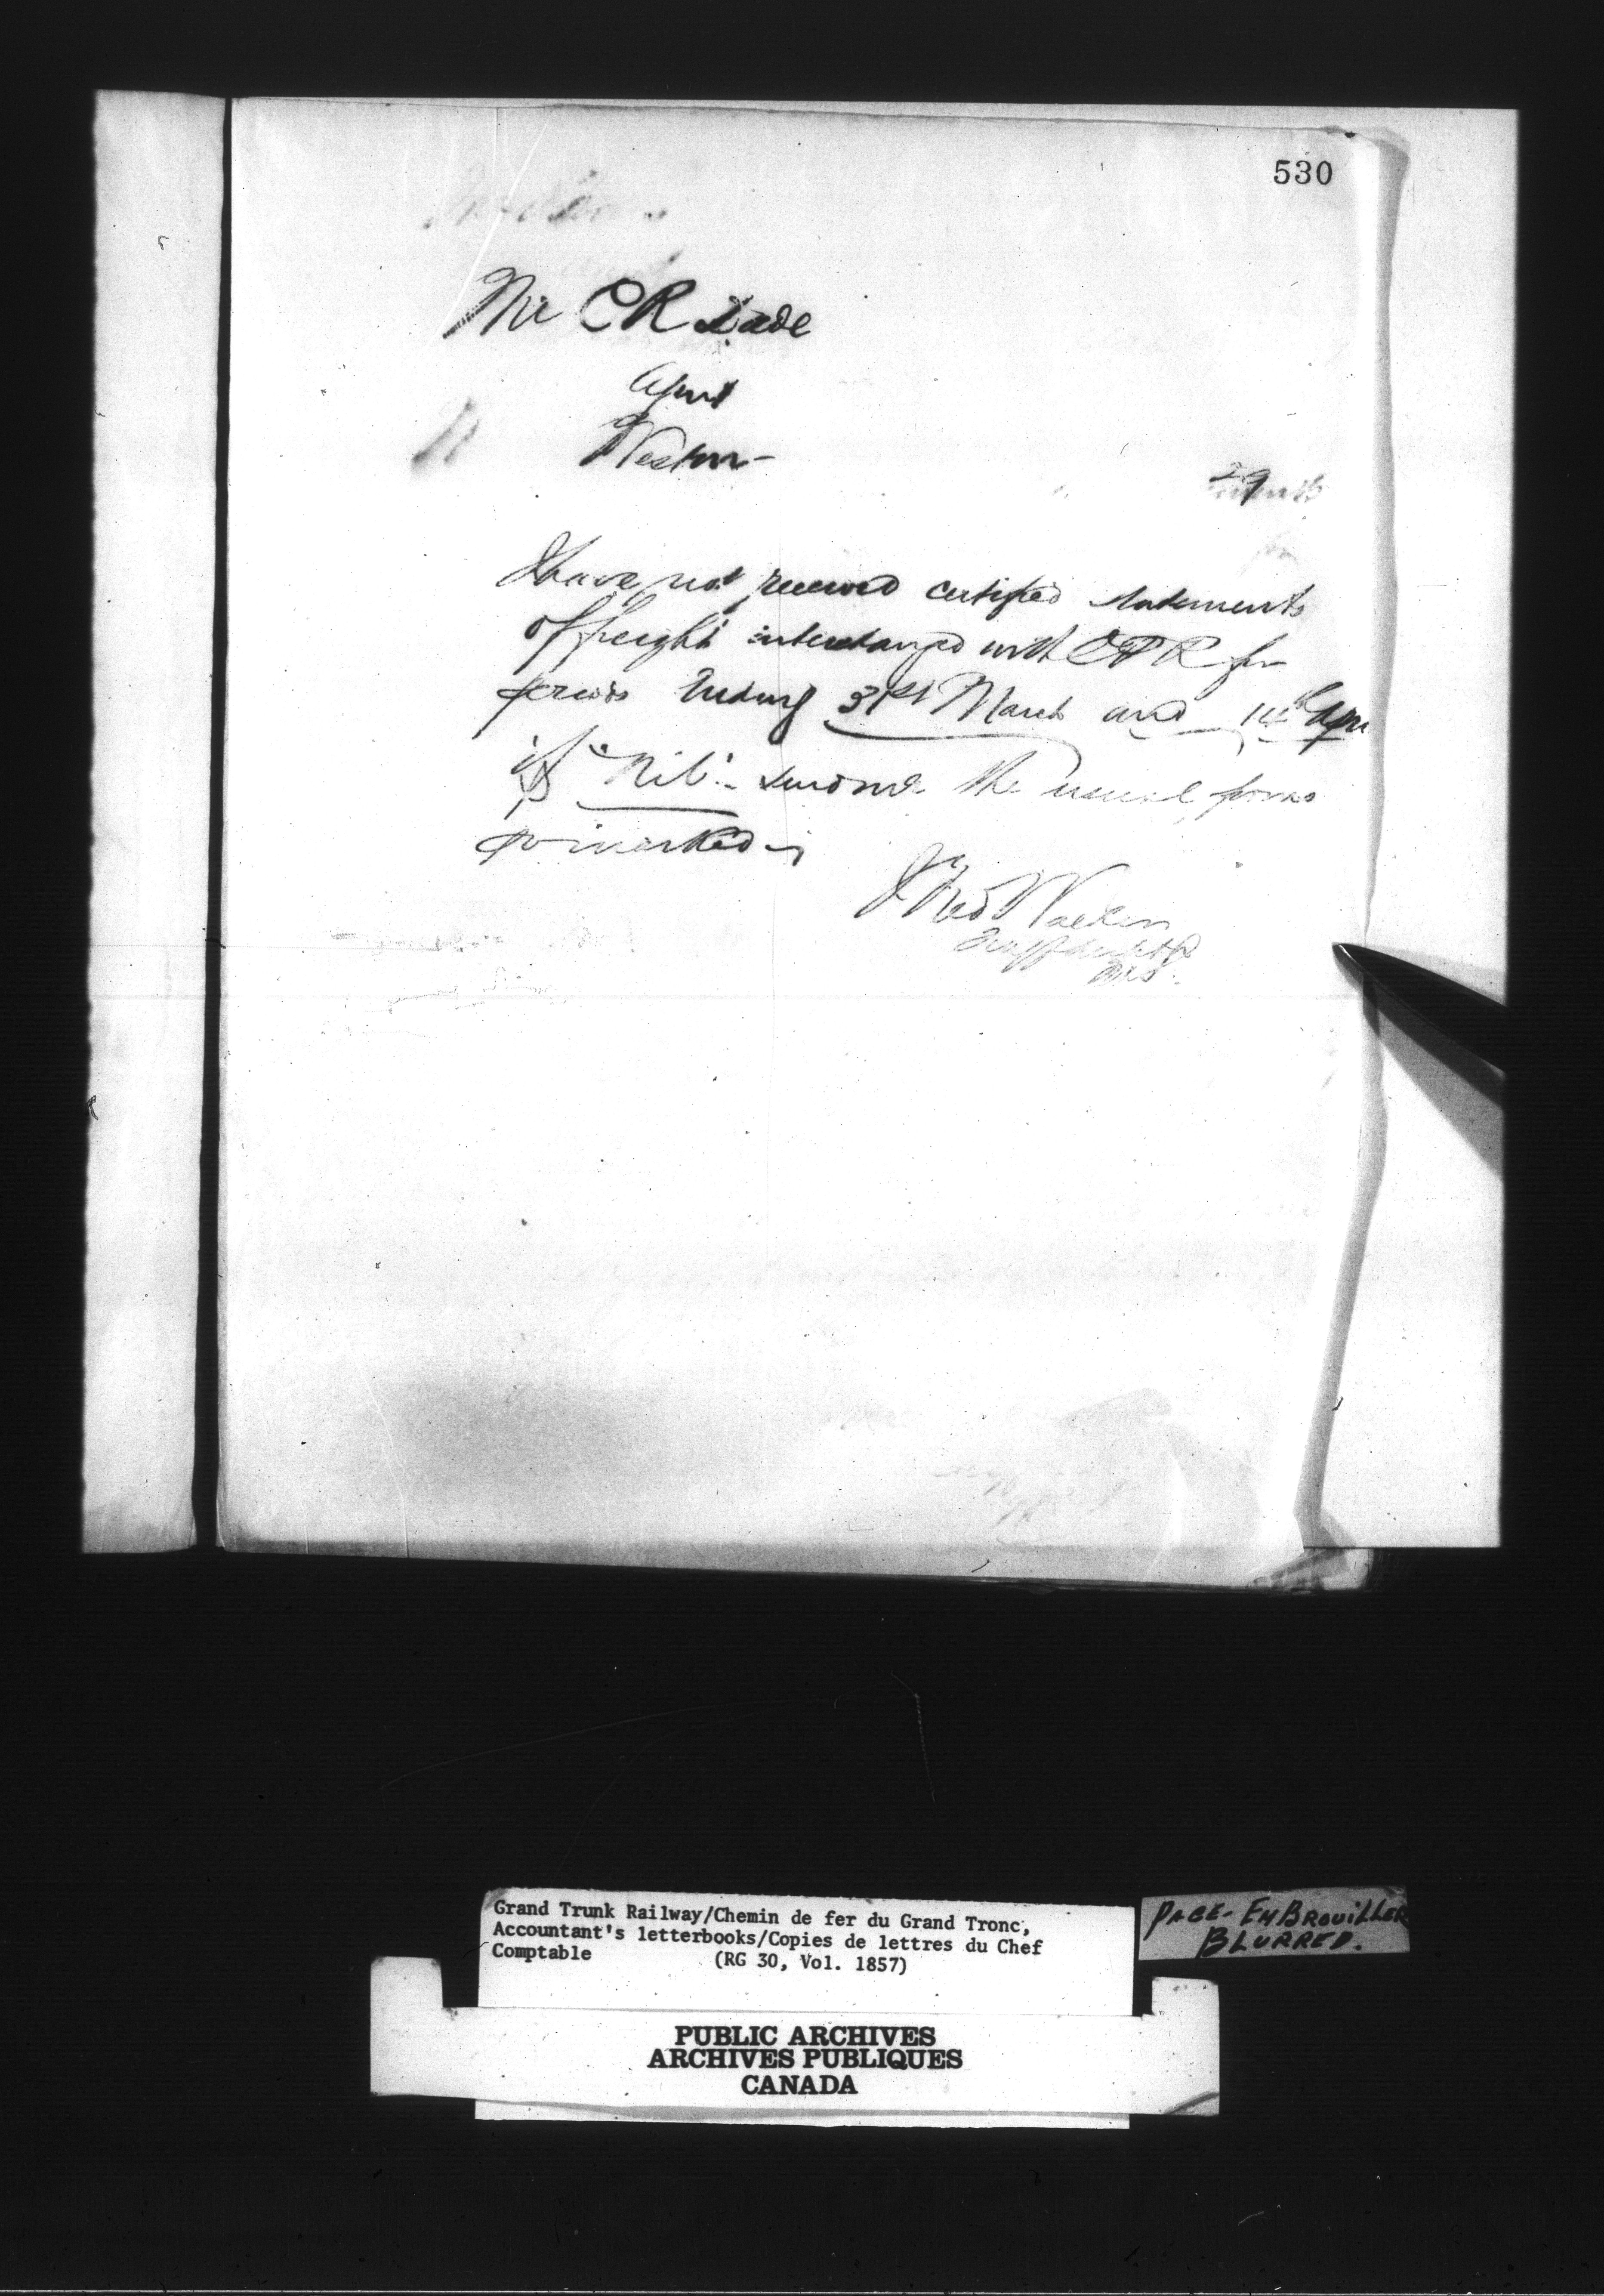 530
Mr C R Dade
Agent
Weston
29
I have not received certified statements
of freight interchanged with CPR for
periods Ending 31st March and 14th Apri
if "Nil" send me the usual forms
so marked
Fred Walker
Grand Trunk Railway/Chemin de fer du Grand Tronc,
Accountant's letterbooks/Copies de lettres du Chef
Comptable (RG 30, Vol. 1857)
PAGE - EMBROUILLER
BLURRED.
PUBLIC ARCHIVES
ARCHIVES PUBLIQUES
CANADA